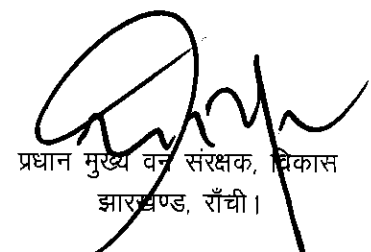 प्रधान मुख्य वन संरक्षक, विकास
झारखण्ड, राँची।